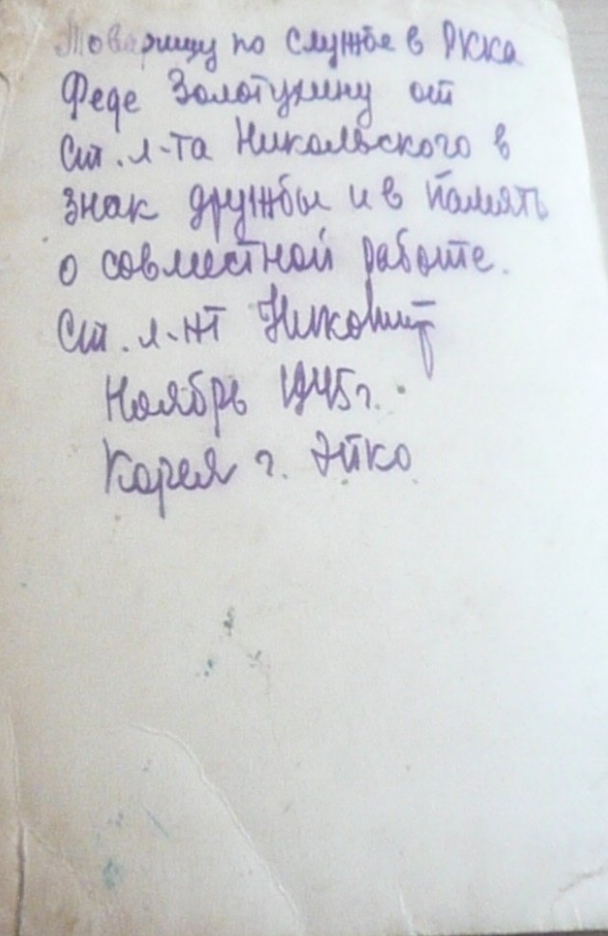 Товарищу по службе в РККА
Феде Золотухину от
Ст. л-та Никольского в
знак дружбы и в память
о совместной работе.
Ст. л-нт
Ноябрь 1945г.
Корея г. Эйко